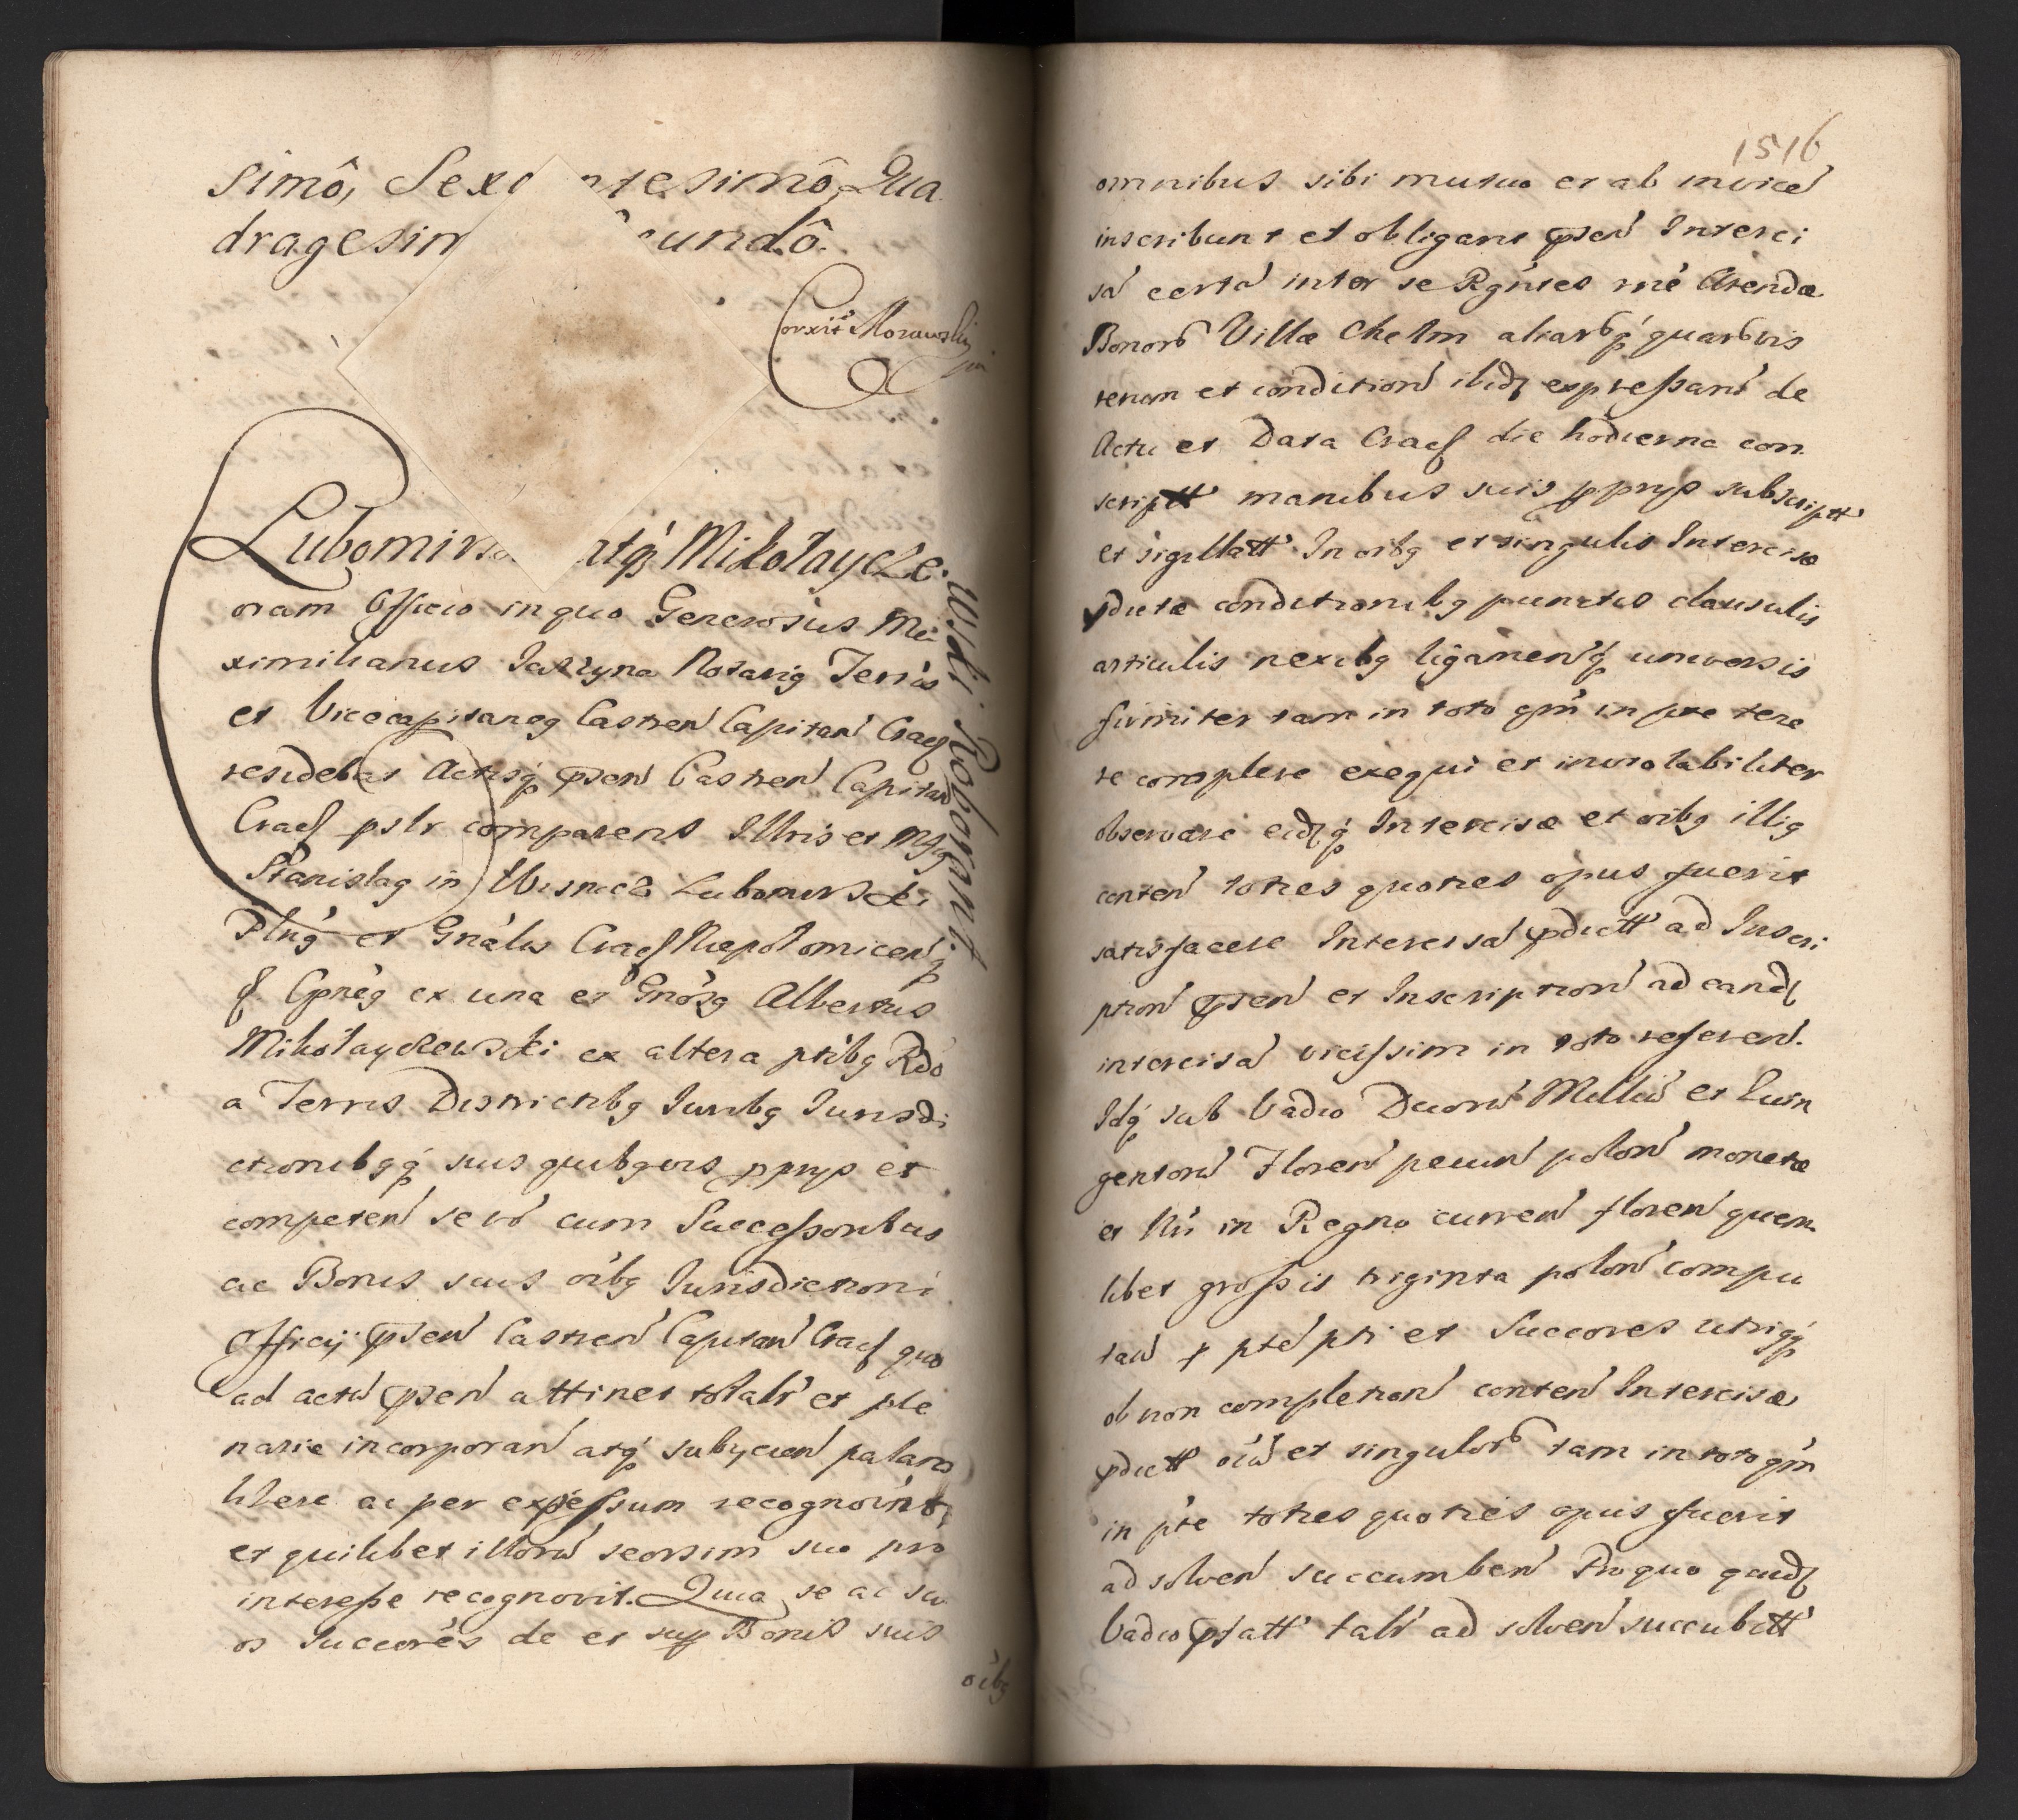 simô, Sex ntesimô, Qua
dragesim cundô.
Corxit Morawski
Lubomirs atq́ Mikołaycze
wski Roborant.
oram Officio in quo Generosus Ma
ximilianus Jaxtyna Notarig Terrís
et Vicecapitaneg Castren Capitan Cracꝭ
residebat Actisq́ pñsen Castren Capitan
Cracꝭ pslr comparens Illris et Mgfg
Stanislag in Wisnicz Lubomirski
Plńg et Gnális Cracꝭ Niepołomicenq́
ꝭ Cpnég ex una et Gnósg Albertus
Mikołayczewski ex altera ptíbg Rdó
a Terris Districtibg Juribg Jurisdi
ctionibgq́ suis quibgvis pprys et
competen se vó cum Successoribus
ac Bonis suis oíbg Jurisdictioni
Officÿ pñsen Castren Capitan Cracꝭ quo
ad actu pñsen attinet totalr et ple
narie incorporan atq́ subycien palam
libere ac per expressum recognoínt
et quilibet illoru seorsim suo pro
interesse recognovit. Quia se ac su
os succorés de et sup Bonis suis
oíbg
1516
omnibus sibi mutuo et ab invice
inscribunt et obligant pñsen Interci
sa certa inter se Rgńtes rnè Arendæ
Bonorꝭ Villæ Chełm aliarꝭq́ quarꝭvis
rerum et condition ibidꝭ expressarꝭ de
Actu et Data Cracꝭ die hodierna con
script manibus suis pprys subscriptt
et sigillatt In oíbg et singulis Intercisæ
pdictæ conditionibg punctis clausulis
articulis nexibg ligamenq́ universis
firmiter tam in toto qm in pte tene
re complere exequi et inviolabiliter
observare eidꝭq́ Intercisæ et oíbg illig
conten toties quoties opus fuerit
satisfacere Intercisa pdictt ad Inscri
ption pñsen et Inscription ad eandꝭ
intercisa vicissim in toto referen.
Idq́ sub Vadio Duoru Milliu et Quin
gentoru Floren pecun polon monetæ
et Nri in Regno curren floren quem
libet grossis triginta polon compu
tan ꝭ pte pti et Succores utrigq́
ob non completion conten Intercisæ
pdictt oíu et singulorꝭ tam in toto qm
in pte toties quoties opus fuerit
ad solven succumben Pro quo quidꝭ
Vadio pstatt talr ad solven succubitt